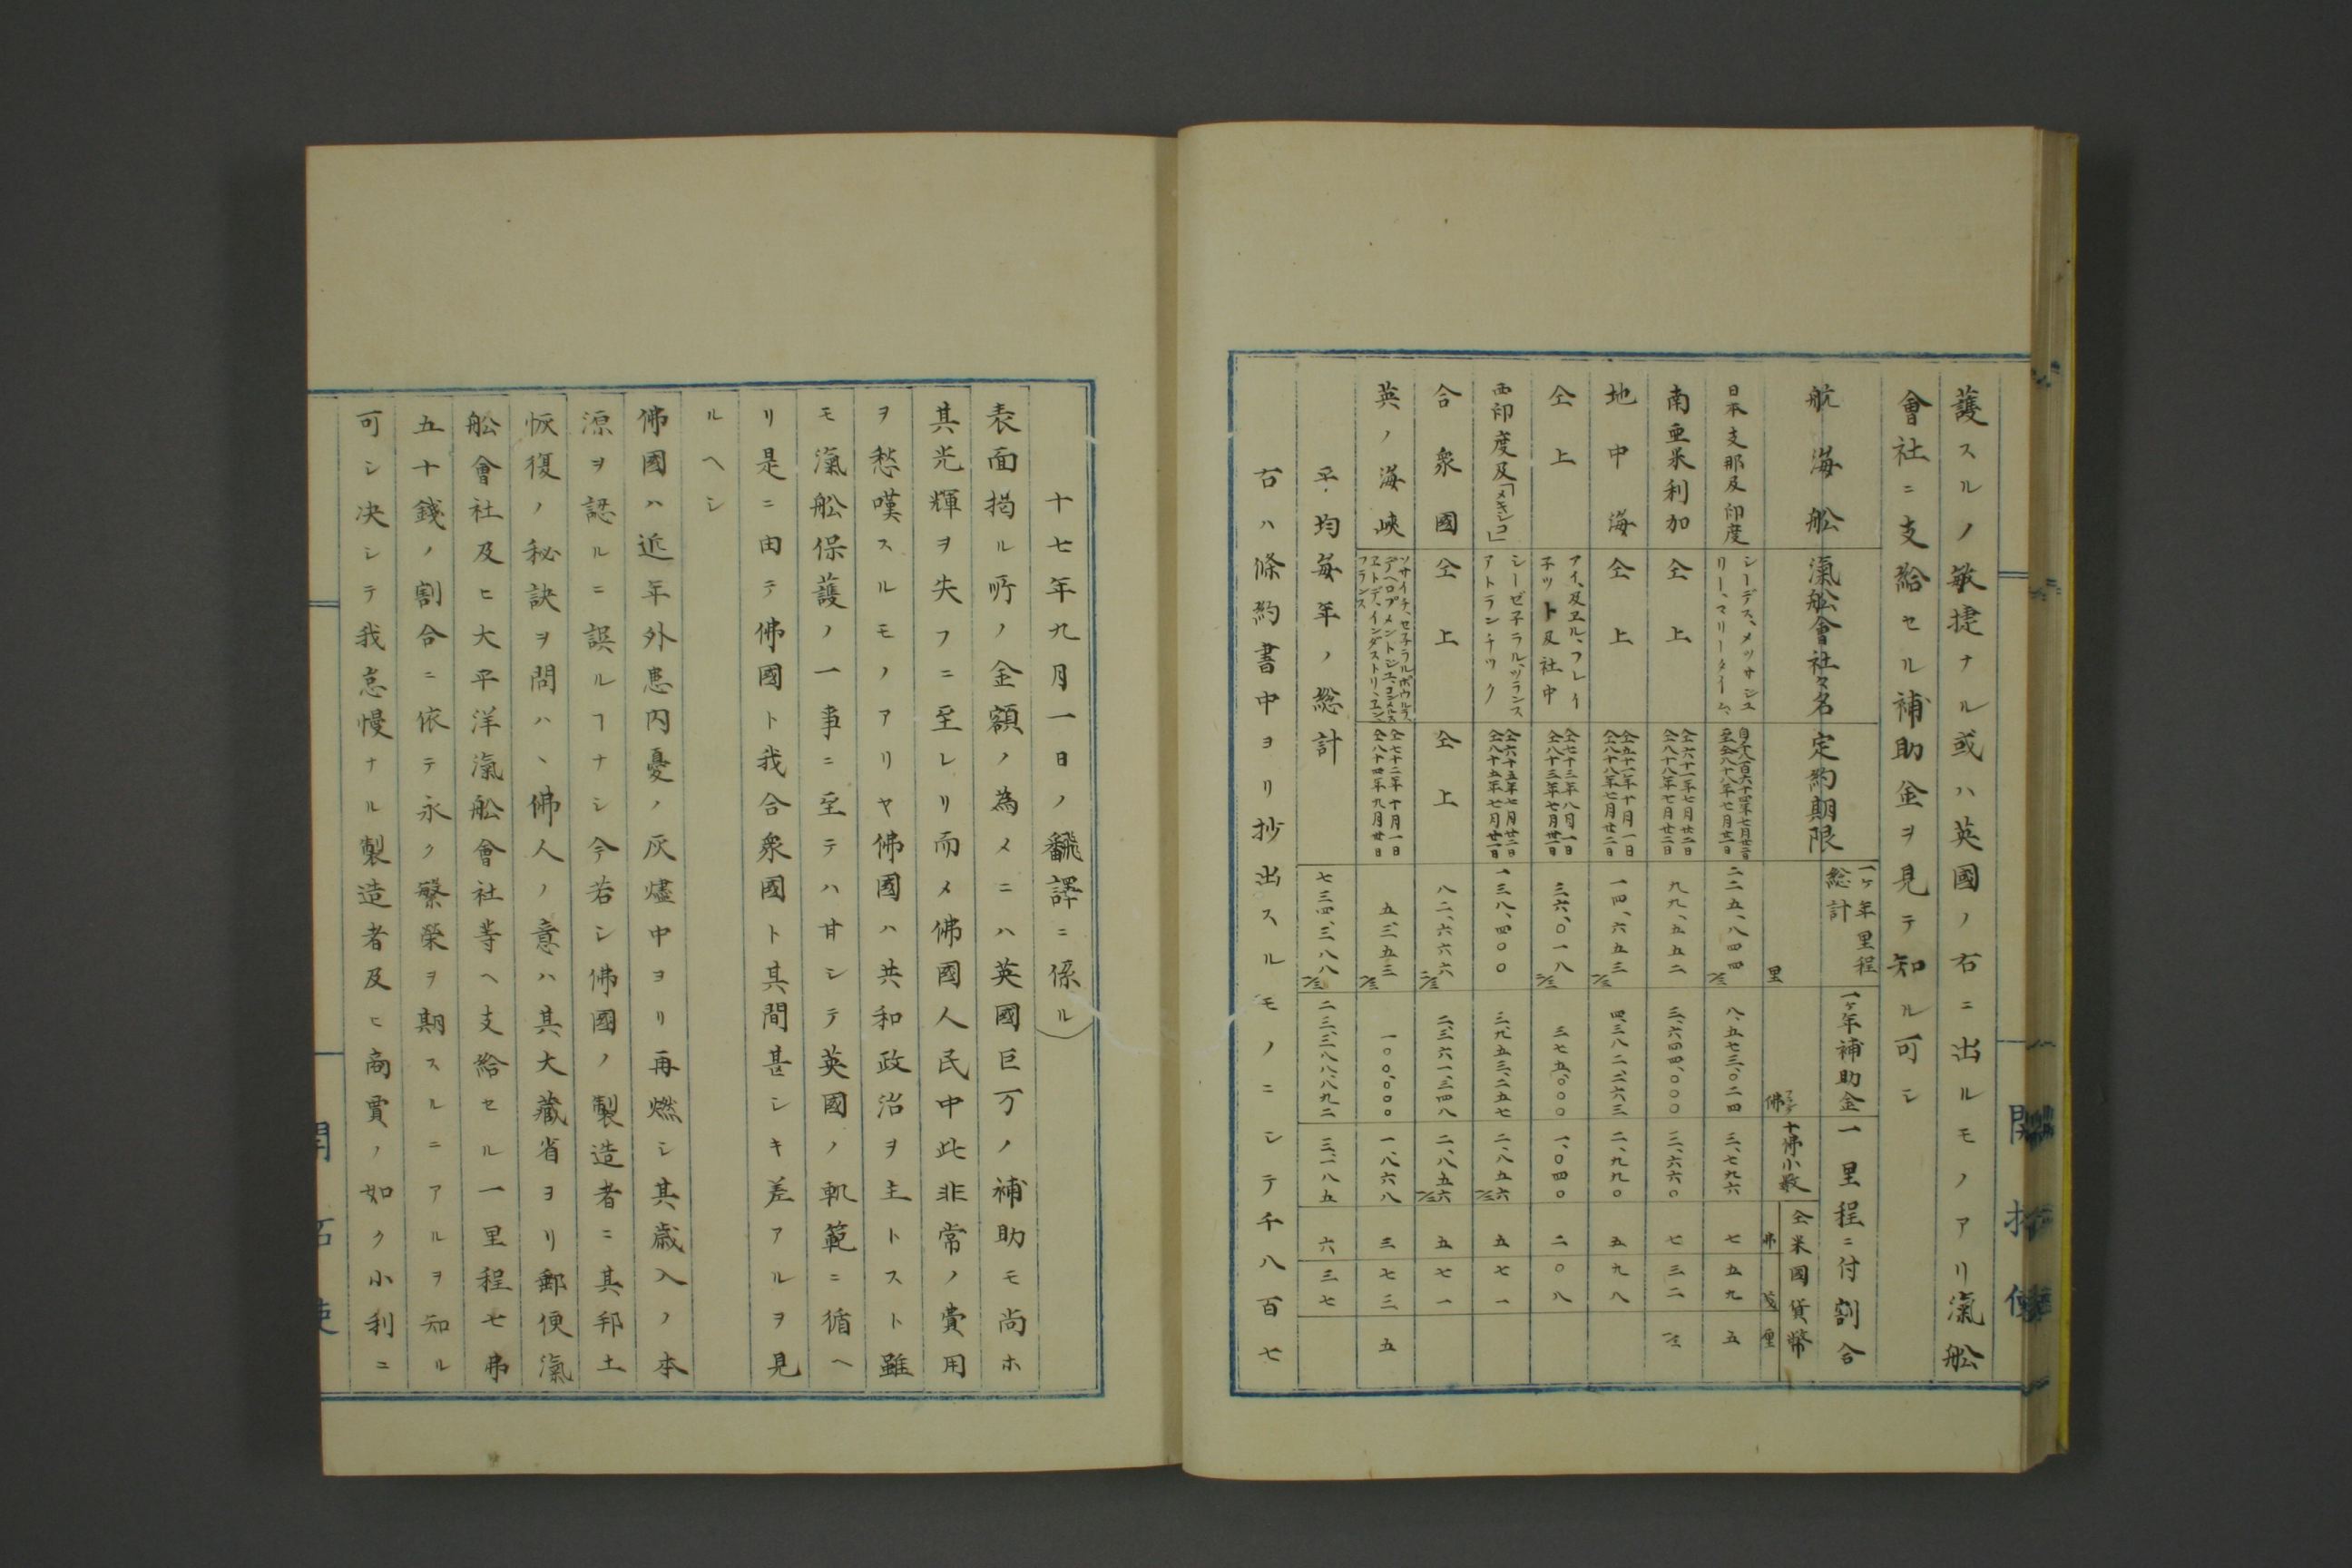 護スルノ敏捷ナル或ハ英國ノ右ニ出ルモノアリ滊舩
會社ニ支給セル補助金ヲ見テ知ル可シ
航海舩 滊舩會社々名 定約期限 一ヶ年里程総計 一ヶ年補助金 一里程ニ付割合
里 佛 十佛小數 仝米國貨幣 弗 厘
日本支那及印度 シーデス、メッサンユリー、マリータイム、 自千八百六十四年七月廿二日至仝八十八年七月廿一日 二二五、八四四 二/三 八、五七三、〇二四 三、七九六 七 五九 五
南亜米利加 仝上 仝六十一年七月廿二日仝八十八年七月廿二日 九九、五五二 三、六四四、〇〇〇 三、六六〇 七 三二
地中海 仝上 仝五十一年十月一日仝八十八年七月廿二日 一四、六五三 二/三 四、三八二、二六三 二、九九〇 五 九八
仝上 アイ、及ヱル、フレイ子ット及社中 仝七十三年八月一日仝八十三年七月廿一日 三六、〇一八 二/三 三七五、〇〇〇 一、〇四〇 二 〇八
西印度及「メキシコ」 シーゼ子ラル、ヅランスアトランチック 仝六十五年七月廿二日仝八十五年七月廿一日 一三八、四〇〇 三、九五三、二五七 二、八五六 二/三 五 七一
合衆國 仝上 仝上 八二、六六六 二/三 二、三六一、三四八 二、八五六 二/三 五 七一
英ノ海峽 仝七十二年十月一日仝八十四年九月廿日 五、三五三 一/三 一〇〇、〇〇〇 一、八六八 三 七三 五
平均毎年ノ総計 七三四、三八八 一/三 二三、三八八、八九二 三、一八五 六 三七
右ハ條約書中ヨリ抄出スルモノニシテ千八百七
十七年九月一日ノ飜譯ニ係ル)
表面掲ル所ノ金額ノ為メニハ英國巨万ノ補助モ尚ホ
其光輝ヲ失フニ至レリ而メ佛國人民中此非常ノ費用
ヲ愁嘆スルモノアリヤ佛國ハ共和政治ヲ主トスト雖
モ滊舩保護ノ一事ニ至テハ甘シテ英國ノ軌範ニ循ヘ
リ是ニ由テ佛國ト我合衆國ト其間甚シキ差アルヲ見
ルヘシ
佛國ハ近年外患内憂ノ灰燼中ヨリ再燃シ其歳入ノ本
源ヲ認ルニ誤ルヿナシ今若シ佛國ノ製造者ニ其邦土
恢復ノ秘訣ヲ問ハヽ佛人ノ意ハ其大藏省ヨリ郵便滊
舩會社及ヒ大平洋滊舩會社等ヘ支給セル一里程七弗
五十錢ノ割合ニ依テ永ク繁榮ヲ期スルニアルヲ知ル
可シ决シテ我怠慢ナル製造者及ヒ商賈ノ如ク小利ニ
開拓使